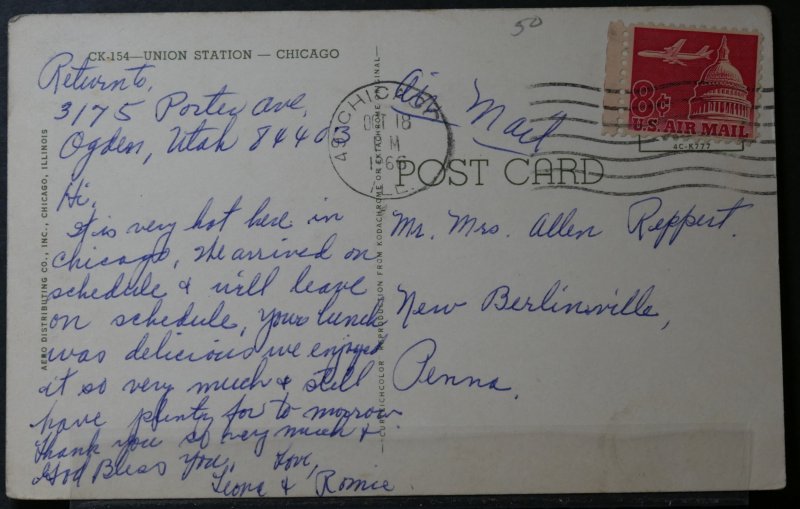 50
CK-154—UNION STATION — CHICAGO
Return to,
3175 Porter Ave,
Ogden, Utah 84403
Hi,
It is very hot here in
Chicago, We arrived on
schedule & will leave
on schedule, Your lunch
was delicious we enjoyed
it so very much & still
have plenty for to morrow
Thank you so very much &
God Bless You. Love,
Leona & Romie
AERO DISTRIBUTING CO., INC., CHICAGO, ILLINOIS
—CURTEICHCOLOR REPRODUCTION FROM KODACHROME OR EKTACHROME ORIGINAL—
CHICAGO
18
M
Air Mail
8¢
U.S. AIR MAIL
4C-K777
POST CARD
Mr. Mrs. Allen Reppert.
New Berlinsville,
Penna.